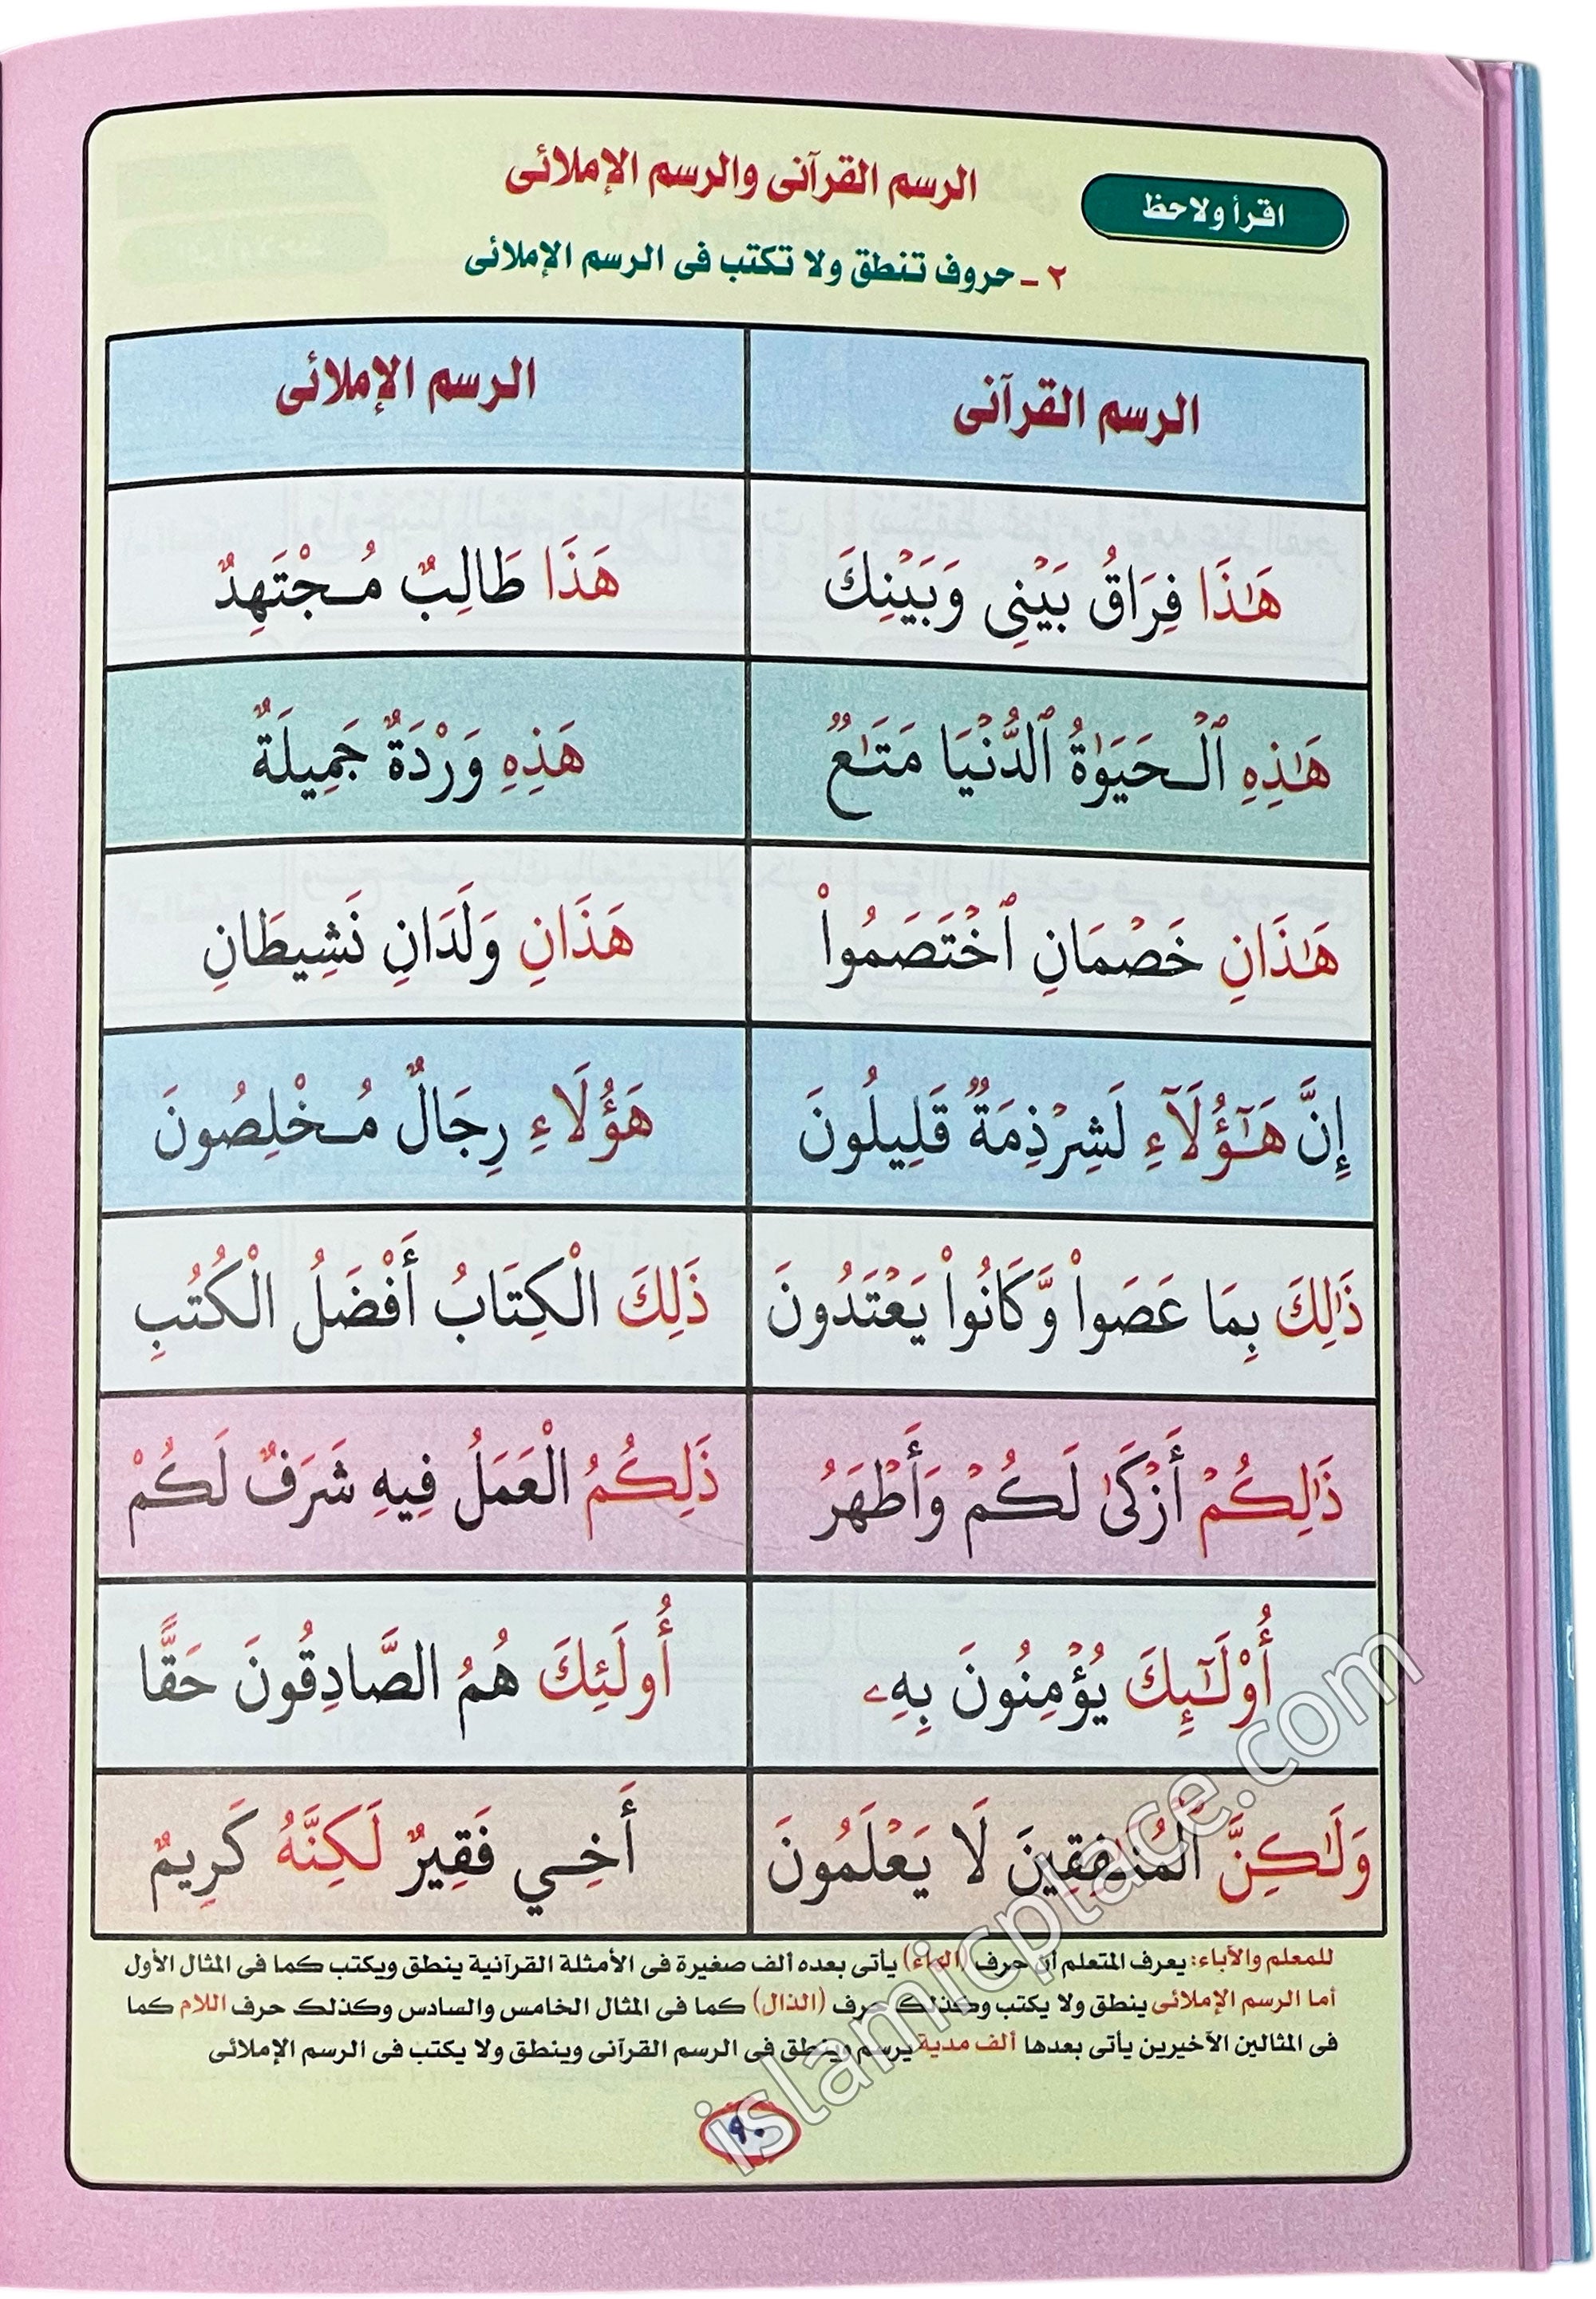 اقرأ ولاحظ
الرسم القرآنى والرسم الإملائى
٢ - حروف تنطق ولا تكتب فى الرسم الإملائى
الرسم القرآنى
الرسم الإملائى
هَٰذَا فِرَاقُ بَيْنِى وَبَيْنِكَ
هَذَا طَالِبٌ مُـجْتَهِدٌ
هَٰذِهِ ٱلْـحَيَوٰةُ ٱلدُّنْيَا مَتَٰعٌ
هَذِهِ وَرْدَةٌ جَمِيلَةٌ
هَٰذَانِ خَصْمَانِ ٱخْتَصَمُوا۟
هَذَانِ وَلَدَانِ نَشِيطَانِ
إِنَّ هَٰٓؤُلَآءِ لَشِرْذِمَةٌ قَلِيلُونَ
هَؤُلَاءِ رِجَالٌ مُـخْلِصُونَ
ذَٰلِكَ بِمَا عَصَوا۟ وَّكَانُوا۟ يَعْتَدُونَ
ذَلِكَ الْكِتَابُ أَفْضَلُ الْكُتُبِ
ذَٰلِكُمْ أَزْكَىٰ لَكُمْ وَأَطْهَرُ
ذَلِكُمُ الْعَمَلُ فِيهِ شَرَفٌ لَكُمْ
أُو۟لَٰٓئِكَ يُؤْمِنُونَ بِهِۦ
أُولَئِكَ هُمُ الصَّادِقُونَ حَقًّا
وَلَٰكِنَّ الْمُنَٰفِقِينَ لَا يَعْلَمُونَ
أَخِـي فَقِيرٌ لَكِنَّهُ كَرِيمٌ
للمعلم والآباء: يعرف المتعلم أن حرف (الهاء) يأتى بعده ألف صغيرة فى الأمثلة القرآنية ينطق ويكتب كما فى المثال الأول
أما الرسم الإملائى ينطق ولا يكتب وكذلك حرف (الذال) كما فى المثال الخامس والسادس وكذلك حرف اللام كما
فى المثالين الآخيرين يأتى بعدها ألف مدية يرسم وينطق فى الرسم القرآنى وينطق ولا يكتب فى الرسم الإملائى
٩٠
islamicplace.com